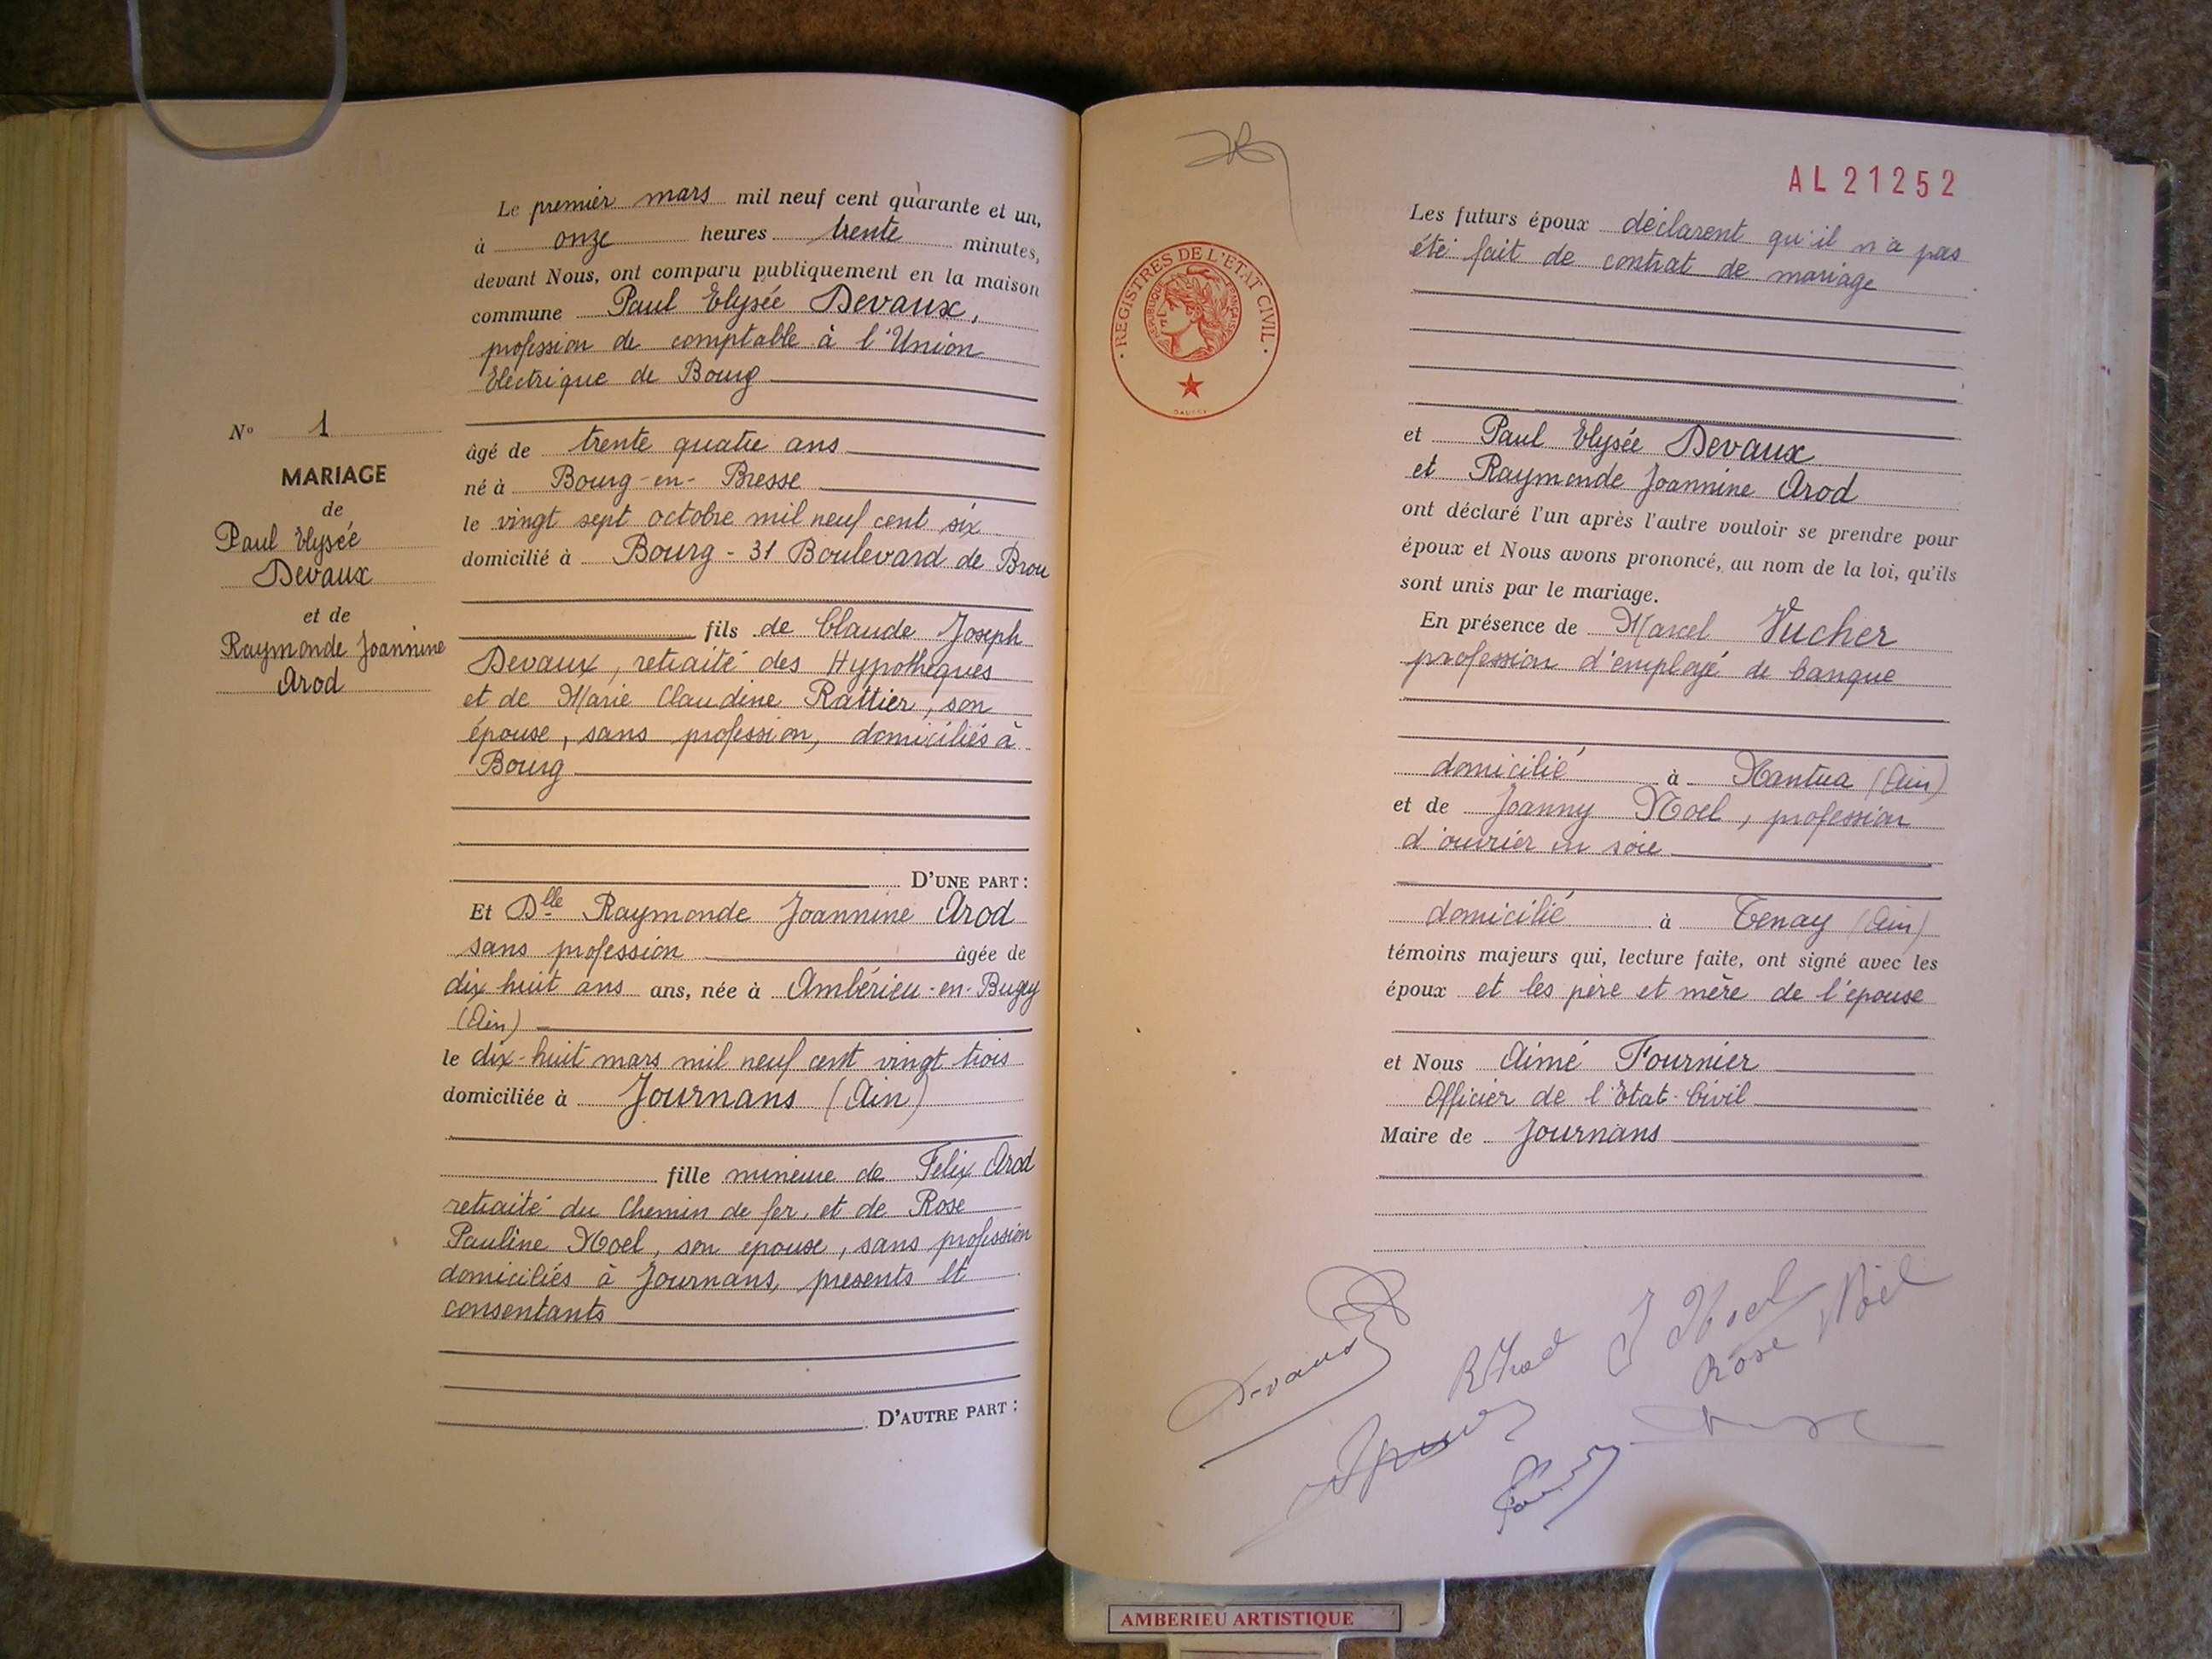 N° 1
MARIAGE
de
Paul Elysée
Devaux
et de
Raymonde Joannine
Arod
Le premier mars mil neuf cent quarante et un,
à onze heures trente minutes,
devant Nous, ont comparu publiquement en la maison
commune Paul Elysée Devaux,
profession de comptable à l'Union
Electrique de Bourg
âgé de trente quatre ans
né à Bourg-en-Bresse
le vingt sept octobre mil neuf cent six
domicilié à Bourg - 31 Boulevard de Brou
fils de Claude Joseph
Devaux, retraité des Hypothèques
et de Marie Claudine Rattier, son
épouse, sans profession, domiciliés à
Bourg
D'UNE PART :
Et Dlle Raymonde Joannine Arod
sans profession âgée de
dix huit ans ans, née à Ambérieu-en-Bugey
(Ain)
le dix-huit mars mil neuf cent vingt trois
domiciliée à Journans (Ain)
fille mineure de Felix Arod
retraité du Chemin de fer, et de Rose
Pauline Noel, son épouse, sans profession
domiciliés à Journans, presents et
consentants
D'AUTRE PART :
AL 21252
REGISTRES DE L'ETAT CIVIL
REPUBLIQUE FRANÇAISE
Les futurs époux déclarent qu'il n'a pas
été fait de contrat de mariage
et Paul Elysée Devaux
et Raymonde Joannine Arod
ont déclaré l'un après l'autre vouloir se prendre pour
époux et Nous avons prononcé, au nom de la loi, qu'ils
sont unis par le mariage.
En présence de Marcel Vucher
profession d'employé de banque
domicilié à Nantua (Ain)
et de Joanny Noel, profession
d'ouvrier en soie
domicilié à Tenay (Ain)
témoins majeurs qui, lecture faite, ont signé avec les
époux et les père et mère de l'épouse
et Nous Aimé Fournier
Officier de l'Etat-Civil
Maire de Journans
Devaux
R Arod
J Noel
Rose Noël
AMBERIEU ARTISTIQUE